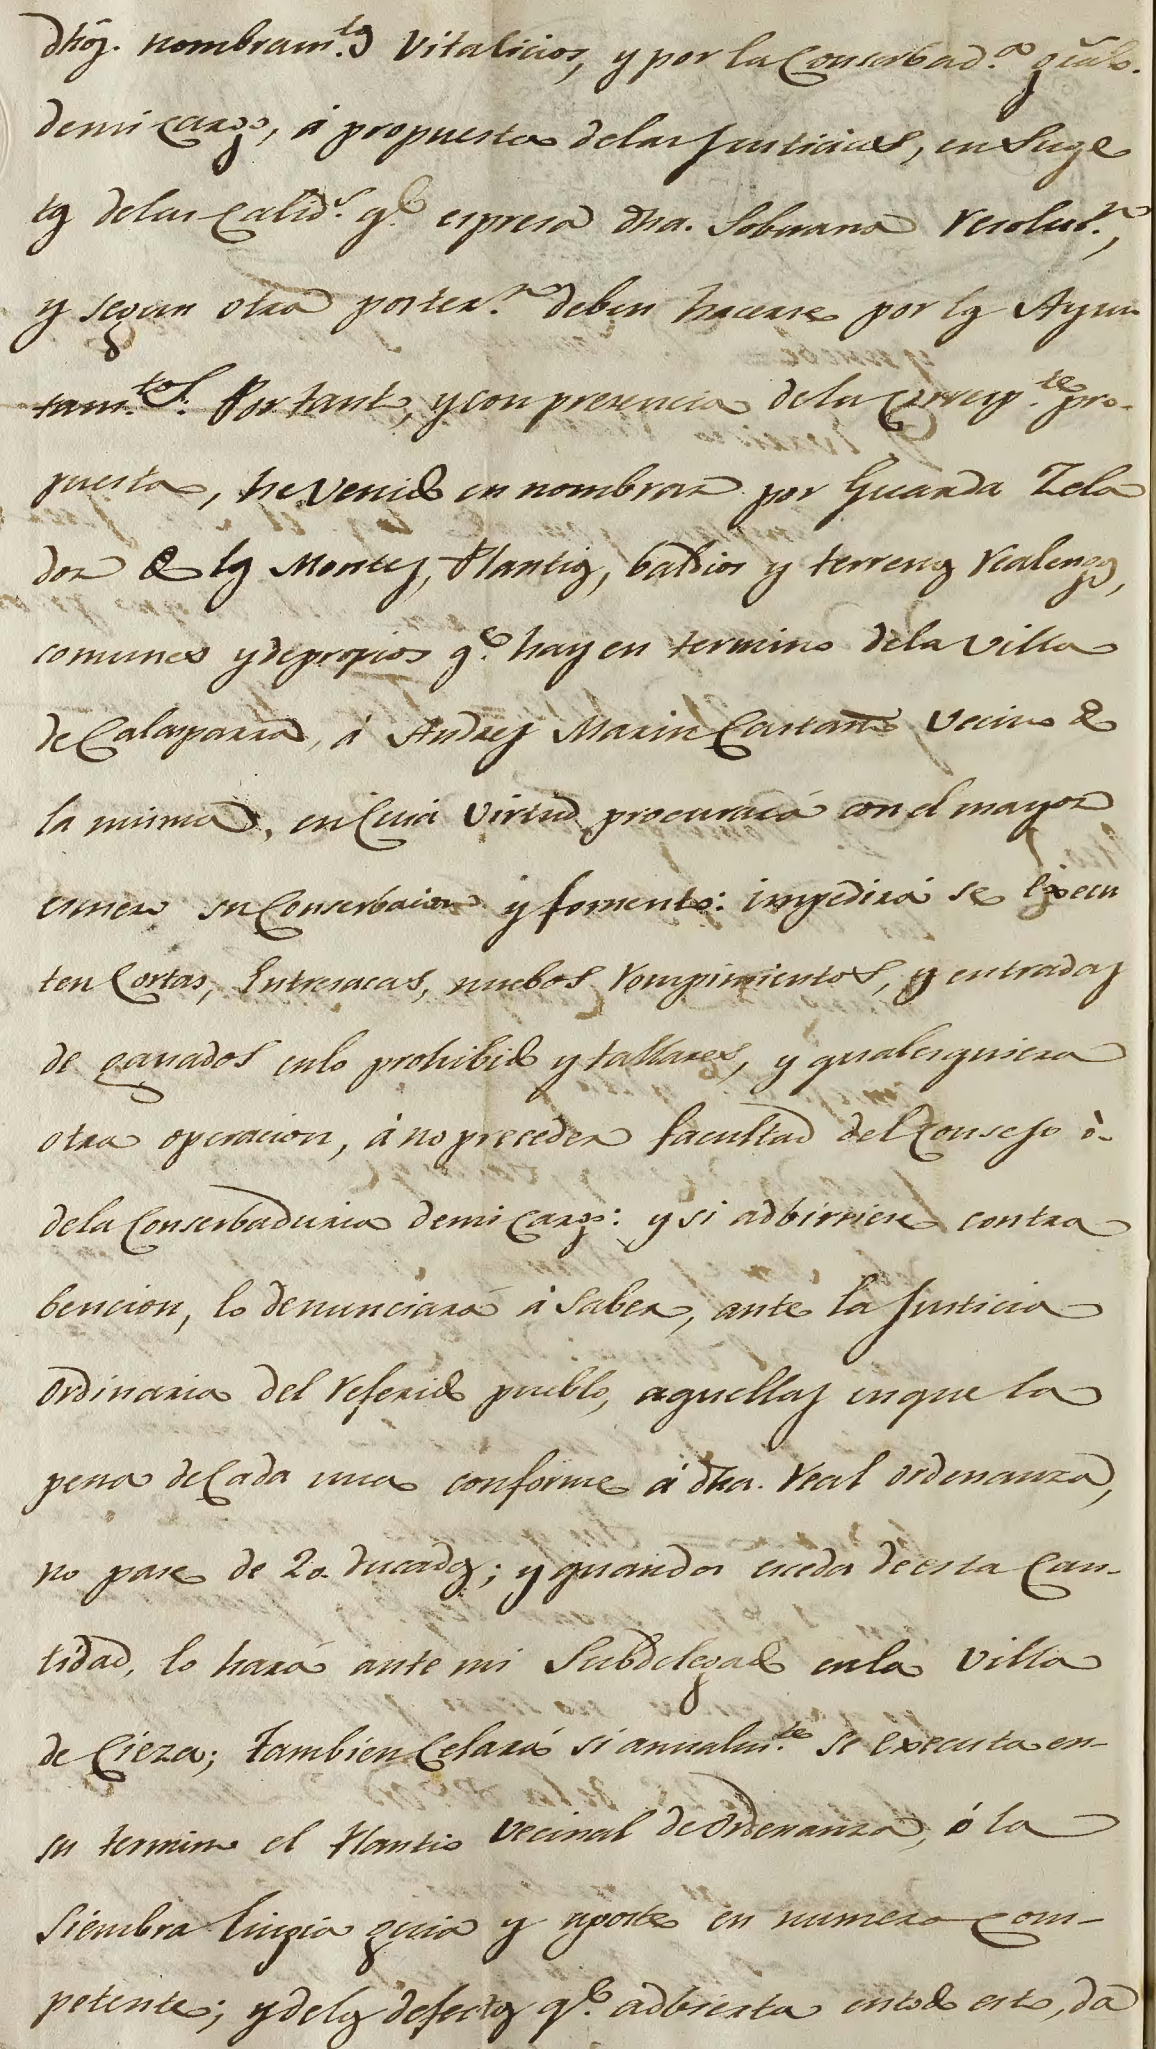 dhos. nombram.tos Vitalicios, y por la Conserbad.a gral.
de mi cargo, á propuesta de las Justicias, en Suge
tos de las Calid.s q.e espresa dha. Soberana Resoluc.n,
y segun otra poster.r deben hacerse por los Ayun
tam.tos: Por tanto, y con presencia de la Corresp.te pro-
puesta, he venido en nombrar por Guarda Zela
dor de los Montes, Plantios, baldios y terrenos Realengos,
comunes y de propios q.e hay en termino de la Villa
de Calasparra, á Andres Marin Castaño Vecino de
la misma, en Cuia Virtud procurará con el mayor
esmero su Conserbacion y fomento: impedirá se Execu
ten Cortas, Entresacas, nuebos Rompimientos, y entradas
de ganados en lo prohibido y tallares, y qualesquiera
otra operacion, á no preceder facultad del Consejo ò-
de la Conserbaduria de mi cargo: y si adbirtiere contra
bencion, lo denunciará á Saber, ante la Justicia
Ordinaria del Referido pueblo, aquellas en que la
pena de Cada una conforme á dha. Real Ordenanza,
no pase de 20. ducados; y quando esceda de esta Can-
tidad, lo hará ante mi Subdelegado en la Villa
de Cieza; tambien Celará si anualm.te se executa en-
su termino el Plantio Vecinal de Ordenanza, ó la
Siembra limpia guia y aposte en numero com-
petente; y de los defectos q.e adbierta en todo esto, da